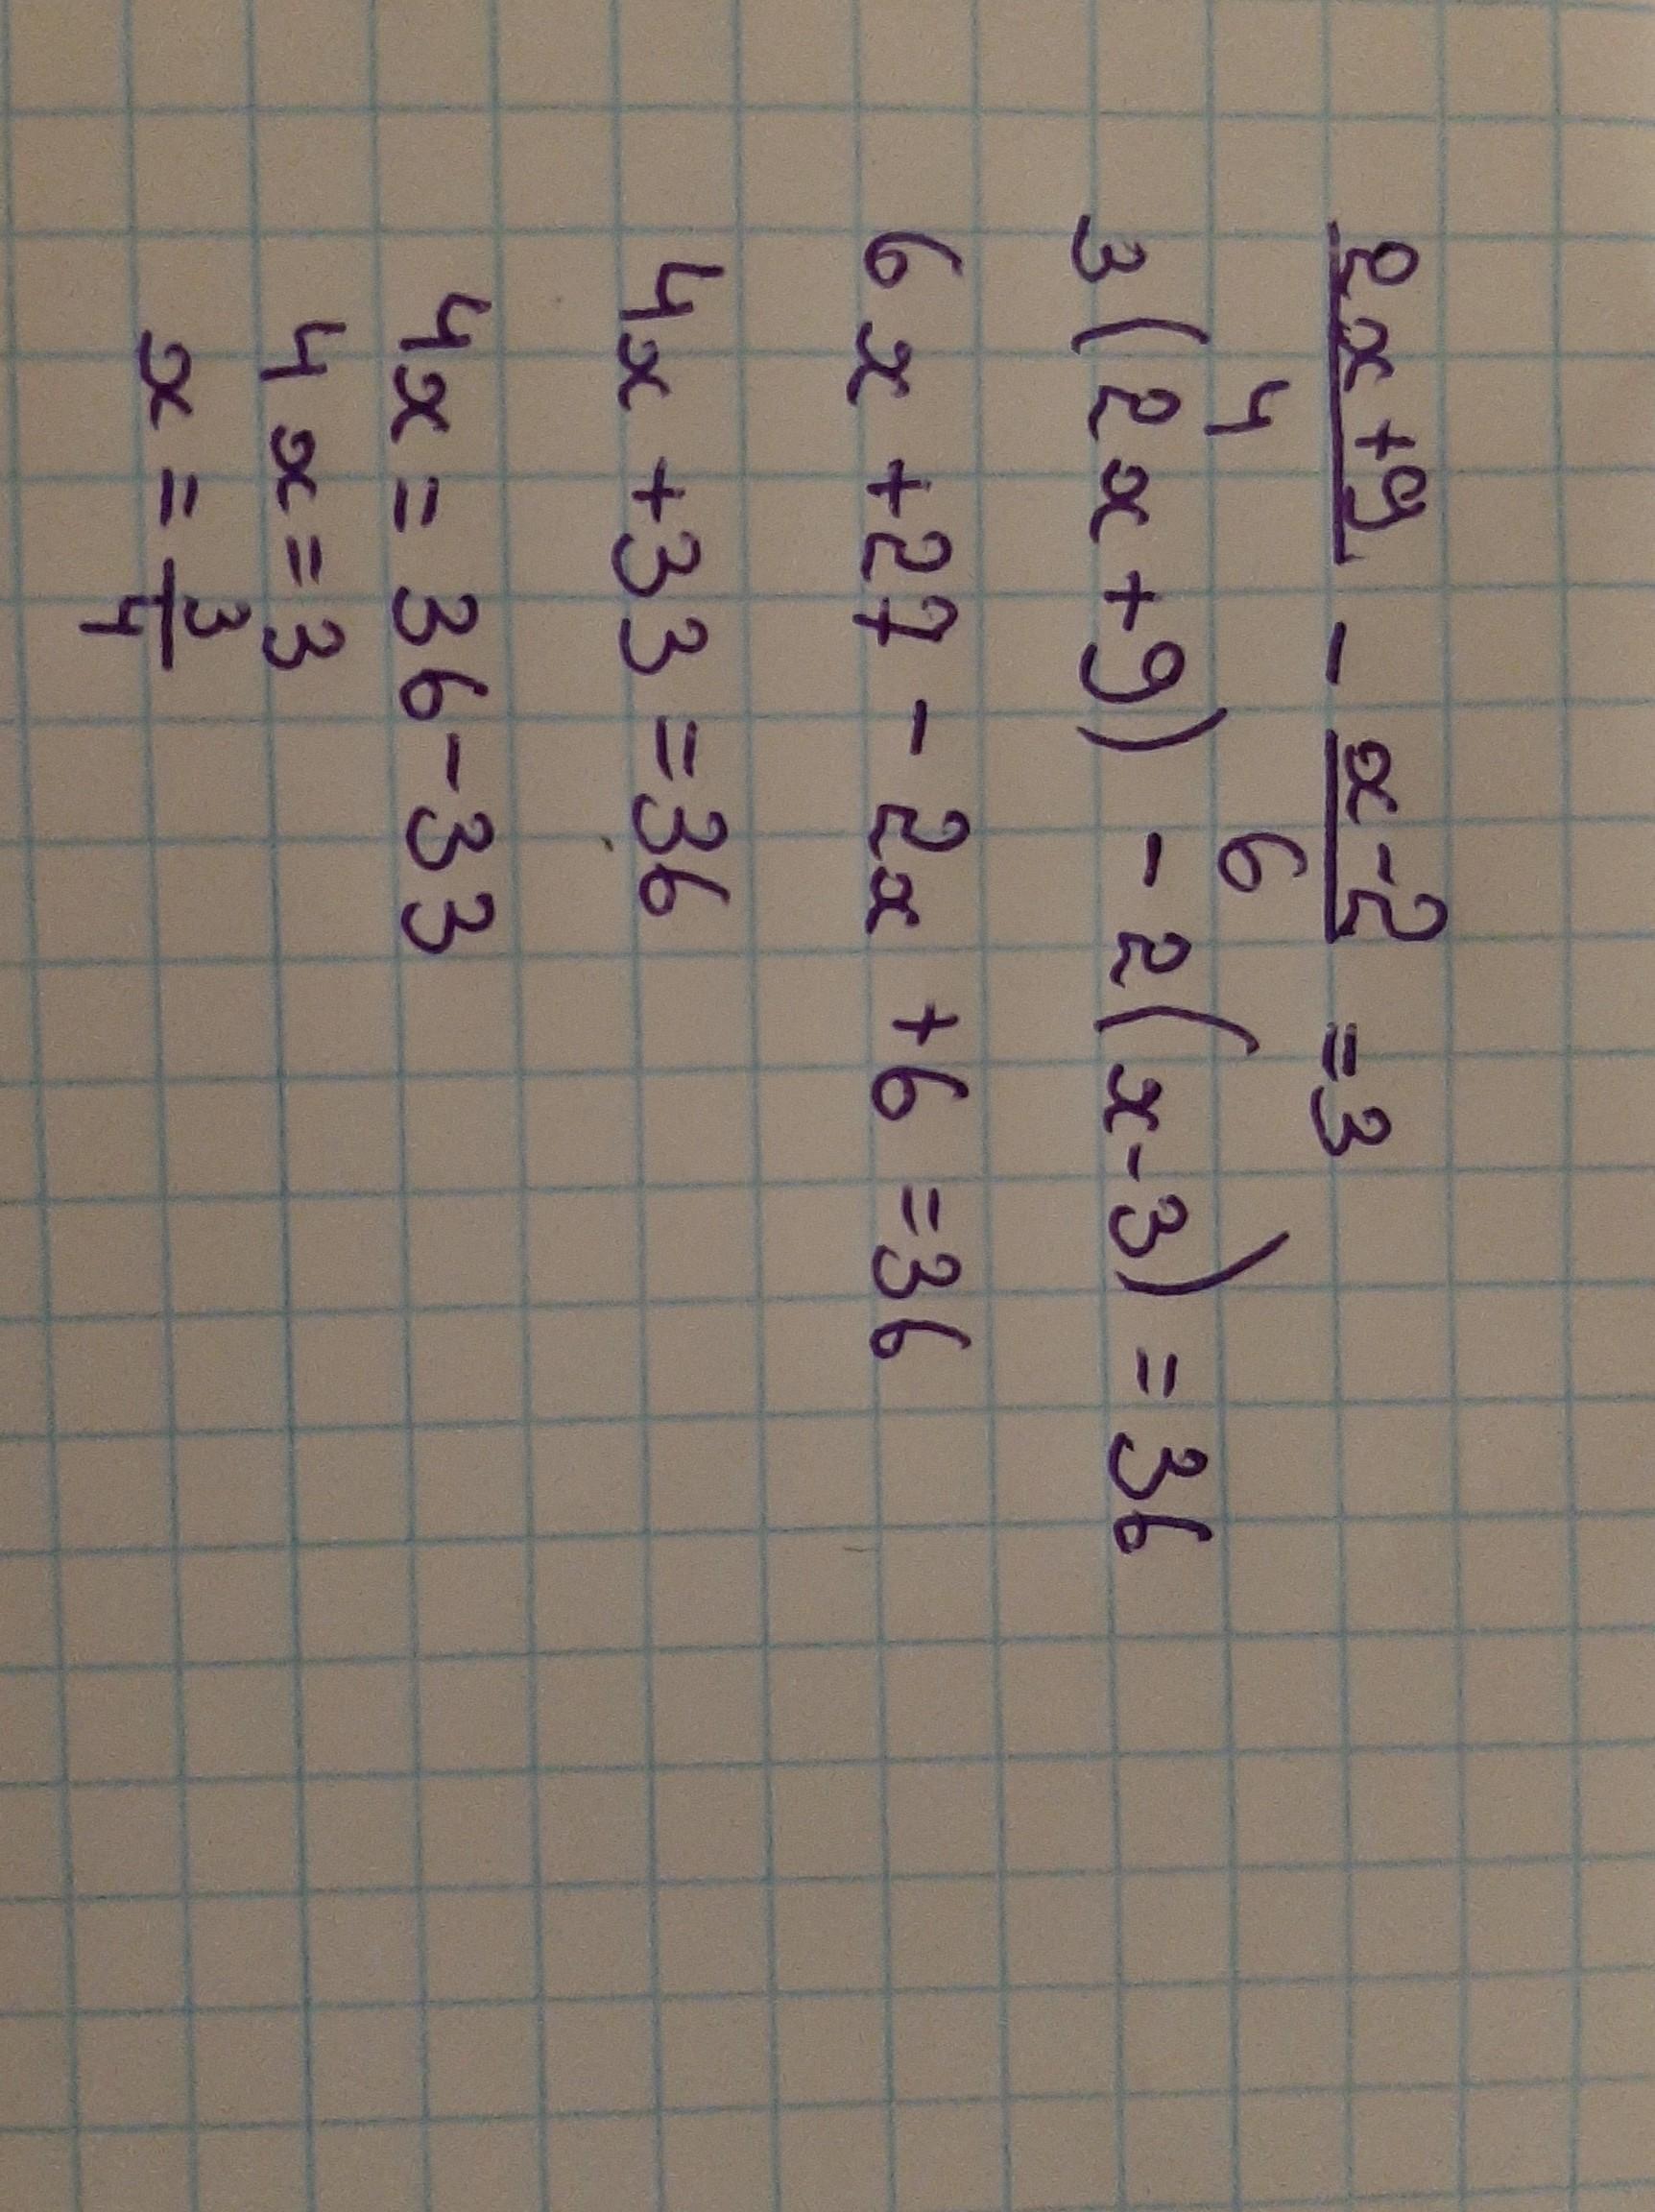 2x+9/4 - x-2/6 = 3
3(2x+9) - 2(x-3) = 36
6x + 27 - 2x + 6 = 36
4x + 33 = 36
4x = 36-33
4x = 3
x = 3/4